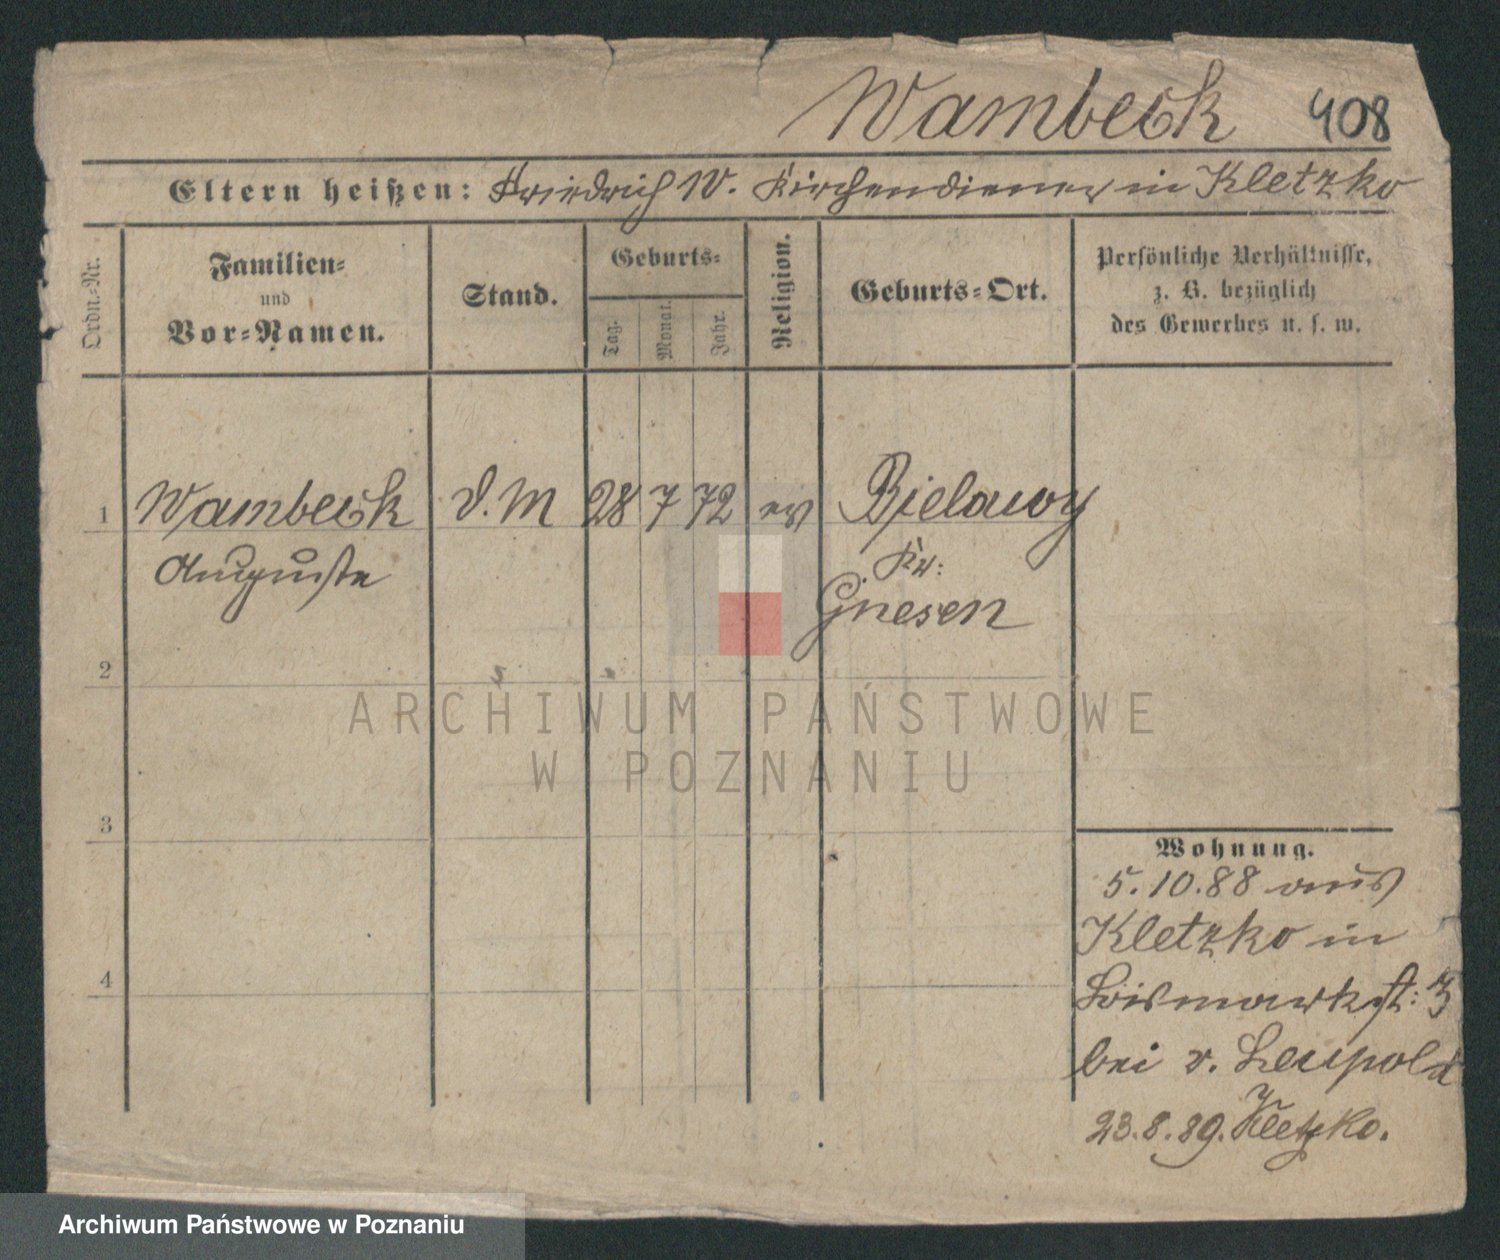 Wambeck 408
Eltern heißen: Friedrich W. Kirchendiener in Kletzko
Ordn.-Nr.
Familien-
und
Vor-Namen.
Stand.
Geburts-
Tag.
Monat.
Jahr.
Religion.
Geburts-Ort.
Persönliche Verhältnisse,
z. B. bezüglich
des Gewerbes u. s. w.
1 Wambeck d. M 28 7 72 ev Bielawy
Auguste Kr:
Gnesen
2
3
4
Wohnung.
5.10.88 aus
Kletzko in
Bismarkst: 3
bei v. Leupold
23.8.89. Kletzko.
ARCHIWUM PAŃSTWOWE
W POZNANIU
Archiwum Państwowe w Poznaniu